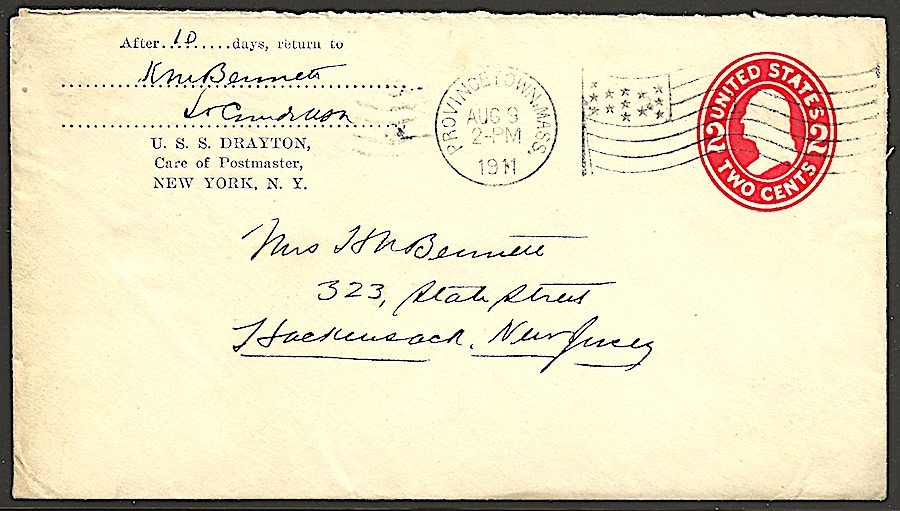 After 10 days, return to
K M Bennett
U. S. S. DRAYTON,
Care of Postmaster,
NEW YORK, N. Y.
PROVINCETOWN, MASS.
AUG 9
2-PM
1911
UNITED STATES
2 2
TWO CENTS
Mrs H M Bennett
323, State Street
Hackensack, New Jersey